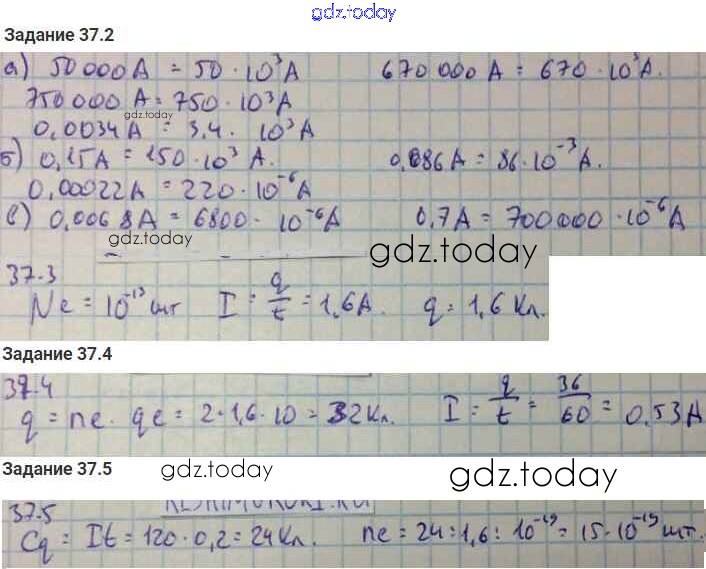 gdz.today
Задание 37.2
а) 50 000 А = 50 · 10³ А 670 000 А = 670 · 10³ А.
750 000 А = 750 · 10³ А
gdz.today
0,0034 А = 3,4 · 10³ А
б) 0,15 А = 150 · 10³ А. 0,086 А = 86 · 10⁻³ А.
0,00022 А = 220 · 10⁻⁶ А
в) 0,0068 А = 6800 · 10⁻⁶ А 0,7 А = 700000 · 10⁻⁶ А
gdz.today gdz.today
37.3
Ne = 10⁻¹³ шт I = q/t = 1,6 А. q = 1,6 Кл.
Задание 37.4
37.4
q = ne · qe = 2 · 1,6 · 10 = 32 Кл. I = q/t = 36/60 = 0,53 А
Задание 37.5 gdz.today gdz.today
37.5
Cq = It = 120 · 0,2 = 24 Кл. ne = 24 : 1,6 : 10⁻¹⁹ = 15 · 10⁻¹⁹ шт.